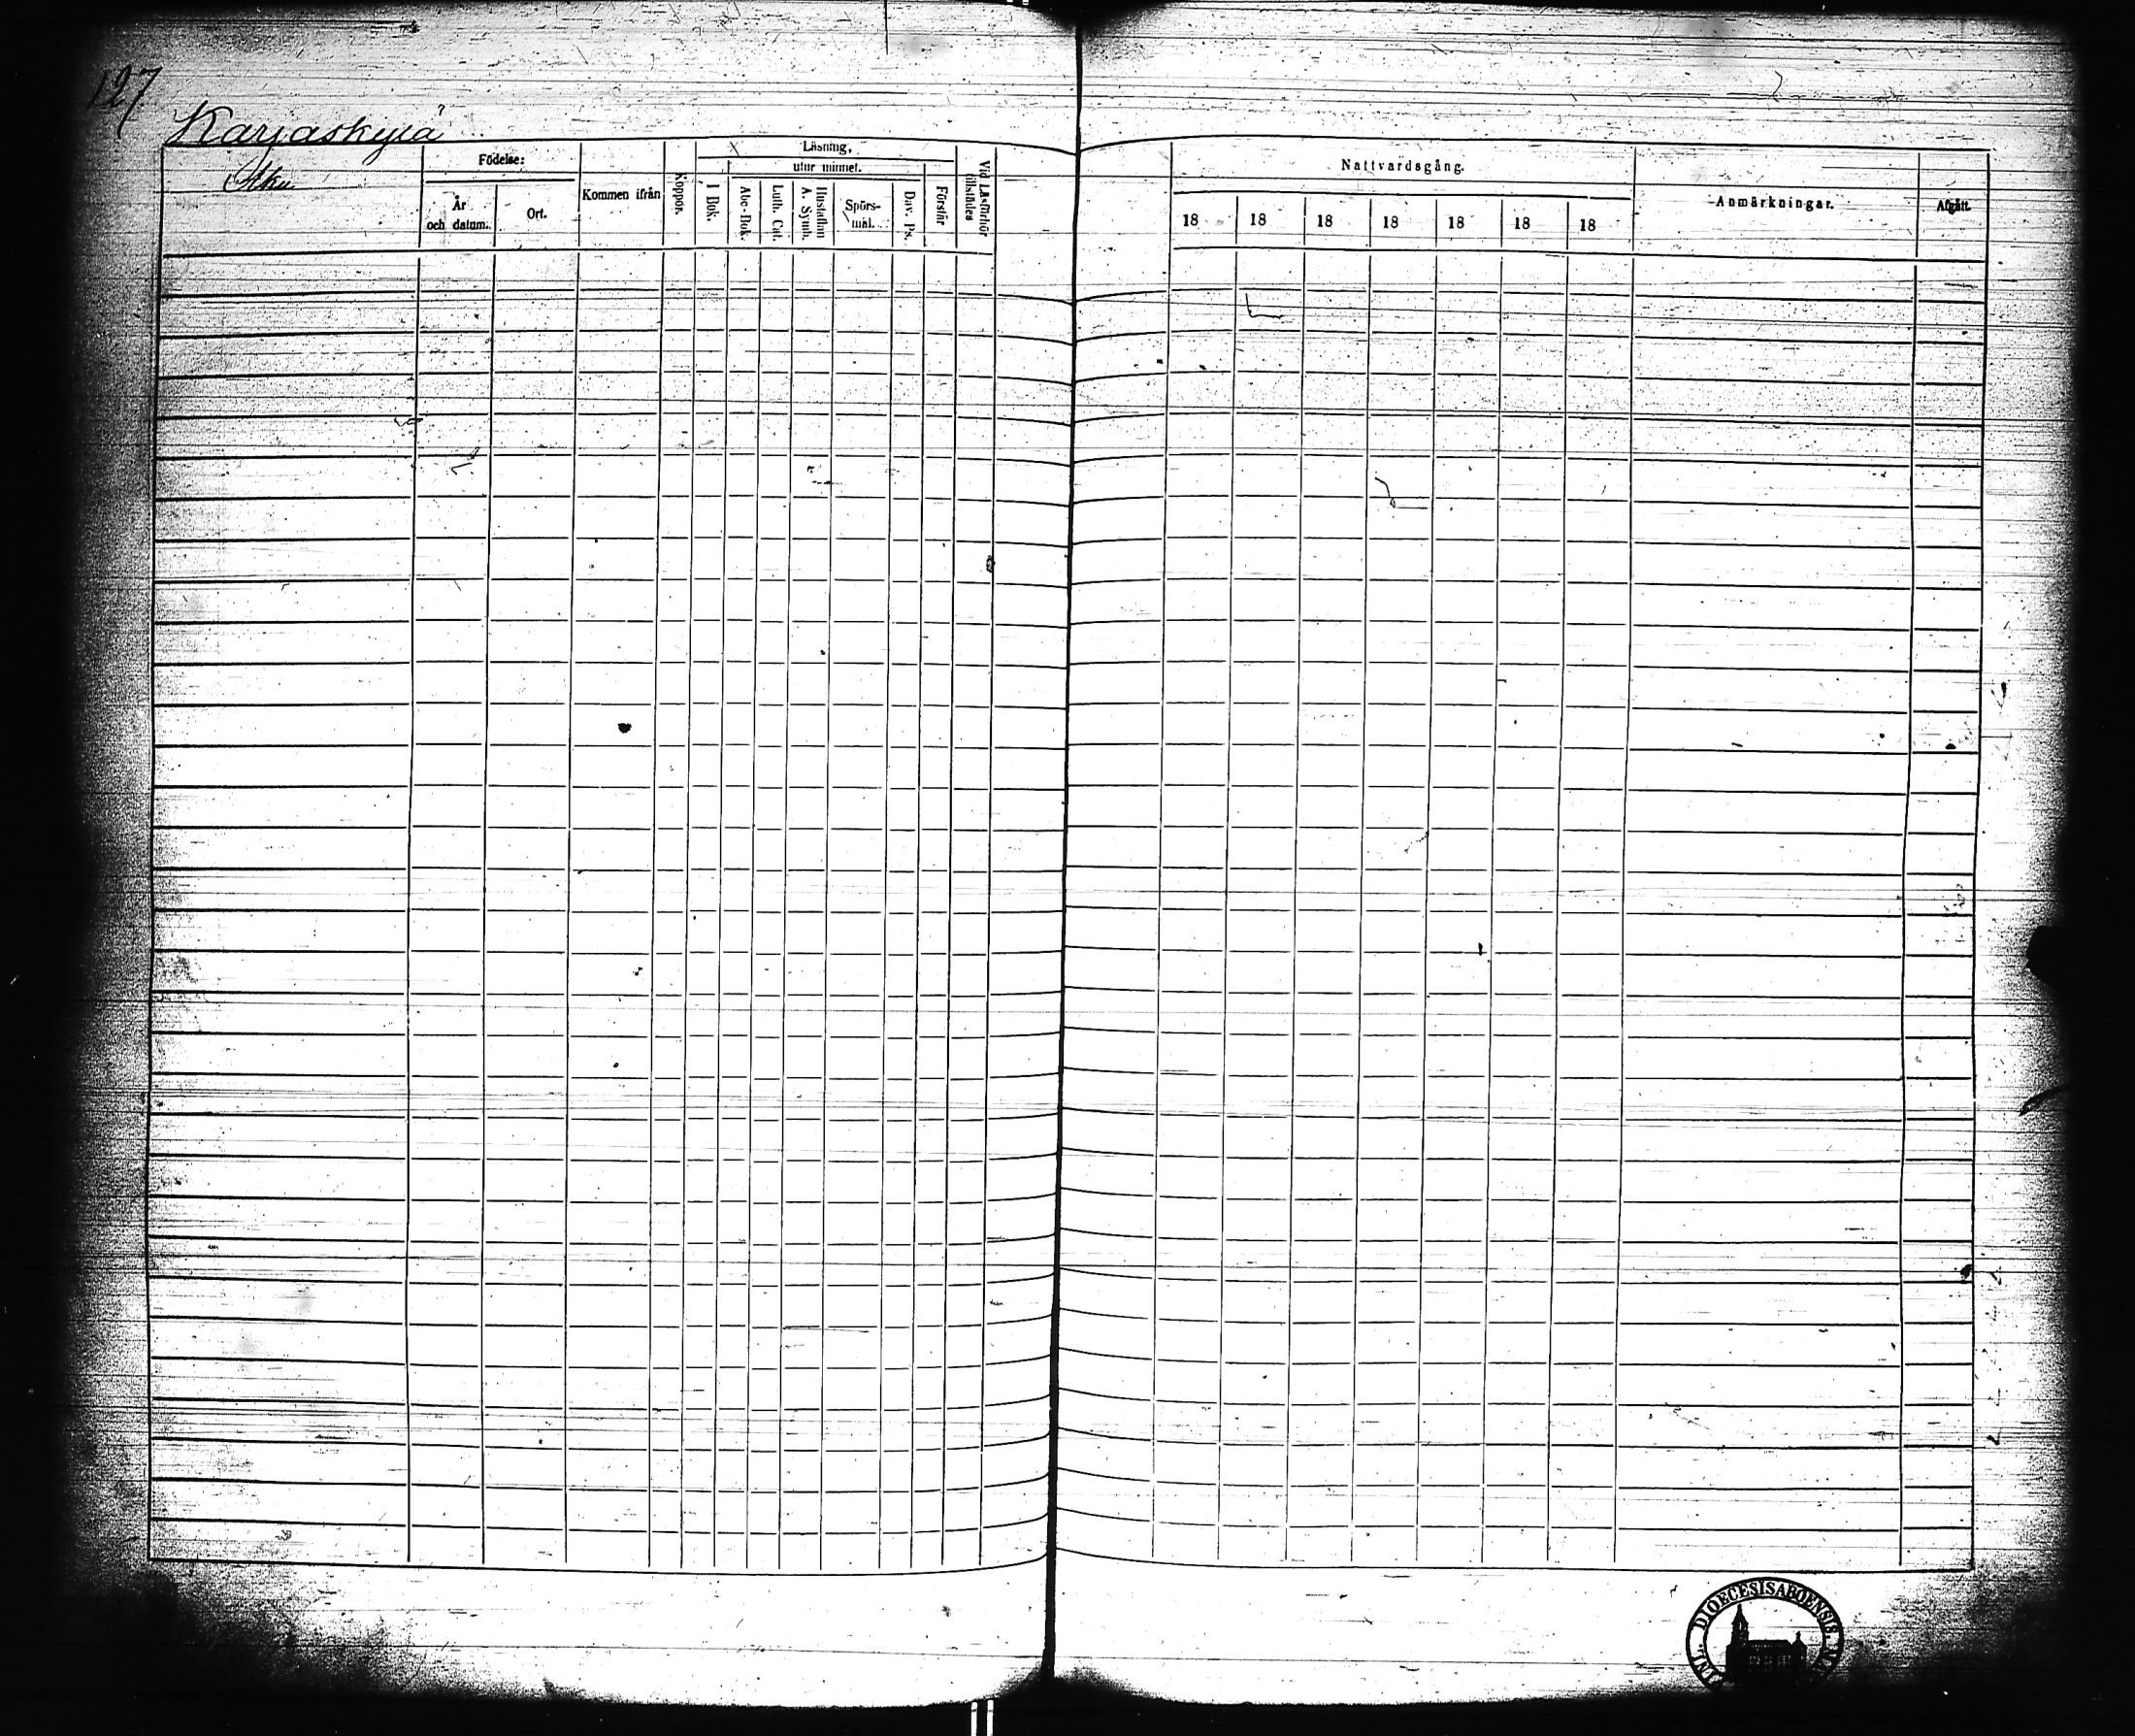 127
Karjaskylä
Aku
Födelse:
År och datum.
Ort.
Kommen ifrån
Koppor.
Läsning,
I Bok.
utur minnet.
Abc-Bok.
Luth. Cat.
Hustaflan A. Symb.
Spörs-mål.
Dav. Ps.
Förstår
Vid Läsförhör tillstädes
Nattvardsgång.
18 18 18 18 18 18 18
Anmärkningar.
Afgått.
DIOECESIS ABOENSIS